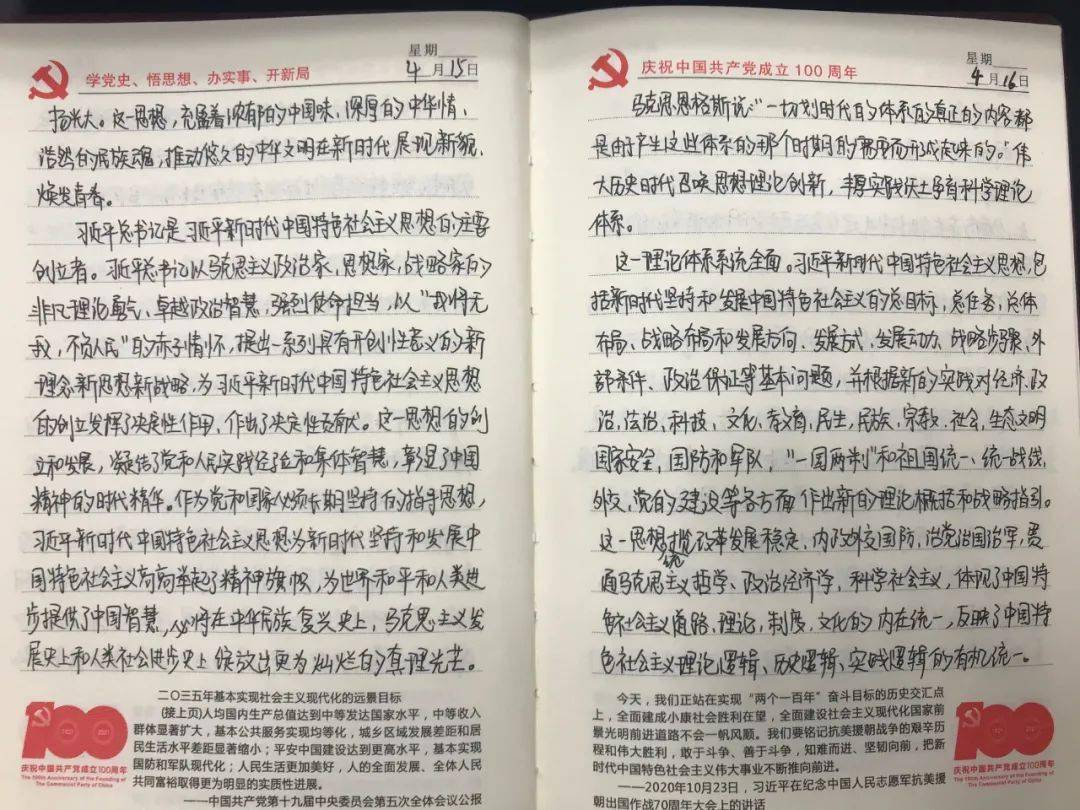 学党史、悟思想、办实事、开新局
星期
4月15日
扬光大。这一思想，充盈着浓郁的中国味、深厚的中华情、
浩然的民族魂，推动悠久的中华文明在新时代展现新貌、
焕发青春。
习近平总书记是习近平新时代中国特色社会主义思想的主要
创立者。习近平总书记以马克思主义政治家、思想家、战略家的
非凡理论勇气、卓越政治智慧、强烈使命担当，以“我将无
我，不负人民”的赤子情怀，提出一系列具有开创性意义的新
理念新思想新战略，为习近平新时代中国特色社会主义思想
的创立发挥了决定性作用、作出了决定性贡献。这一思想的创
立和发展，凝结了党和人民实践经验和集体智慧，彰显了中国
精神的时代精华。作为党和国家必须长期坚持的指导思想，
习近平新时代中国特色社会主义思想为新时代坚持和发展中
国特色社会主义高高举起了精神旗帜，为世界和平和人类进
步提供了中国智慧，必将在中华民族复兴史上，马克思主义发
展史上和人类社会进步史上绽放出更为灿烂的真理光芒。
二〇三五年基本实现社会主义现代化的远景目标
(接上页)人均国内生产总值达到中等发达国家水平，中等收入
群体显著扩大，基本公共服务实现均等化，城乡区域发展差距和居
民生活水平差距显著缩小；平安中国建设达到更高水平，基本实现
国防和军队现代化；人民生活更加美好，人的全面发展、全体人民
共同富裕取得更为明显的实质性进展。
——中国共产党第十九届中央委员会第五次全体会议公报
100
1921 2021
庆祝中国共产党成立100周年
The 100th Anniversary of the Founding of
The Communist Party of China
庆祝中国共产党成立100周年
星期
4月16日
马克思恩格斯说：“一切划时代的体系的真正的内容都
是由于产生这些体系的那个时期的需要而形成起来的。”伟
大历史时代召唤思想理论创新，丰厚实践沃土孕育科学理论
体系。
这一理论体系系统全面。习近平新时代中国特色社会主义思想，包
括新时代坚持和发展中国特色社会主义的总目标，总任务，总体
布局、战略布局和发展方向、发展方式、发展动力、战略步骤、外
部条件、政治保证等基本问题，并根据新的实践对经济、政
治，法治，科技，文化，教育，民生，民族，宗教，社会，生态文明
国家安全，国防和军队，“一国两制”和祖国统一、统一战线，
外交，党的建设等各方面作出新的理论概括和战略指引。
这一思想统揽改革发展稳定、内政外交国防，治党治国治军，贯
通马克思主义哲学、政治经济学，科学社会主义，体现了中国特
色社会主义道路，理论，制度，文化的内在统一，反映了中国特
色社会主义理论逻辑、历史逻辑、实践逻辑的有机统一。
今天，我们正站在实现“两个一百年”奋斗目标的历史交汇点
上，全面建成小康社会胜利在望，全面建设社会主义现代化国家前
景光明前进道路不会一帆风顺。我们要铭记抗美援朝战争的艰辛历
程和伟大胜利，敢于斗争、善于斗争，知难而进、坚韧向前，把新
时代中国特色社会主义伟大事业不断推向前进。
——2020年10月23日，习近平在纪念中国人民志愿军抗美援
朝出国作战70周年大会上的讲话
100
1921 2021
庆祝中国共产党成立100周年
The 100th Anniversary of the Founding of
The Communist Party of China